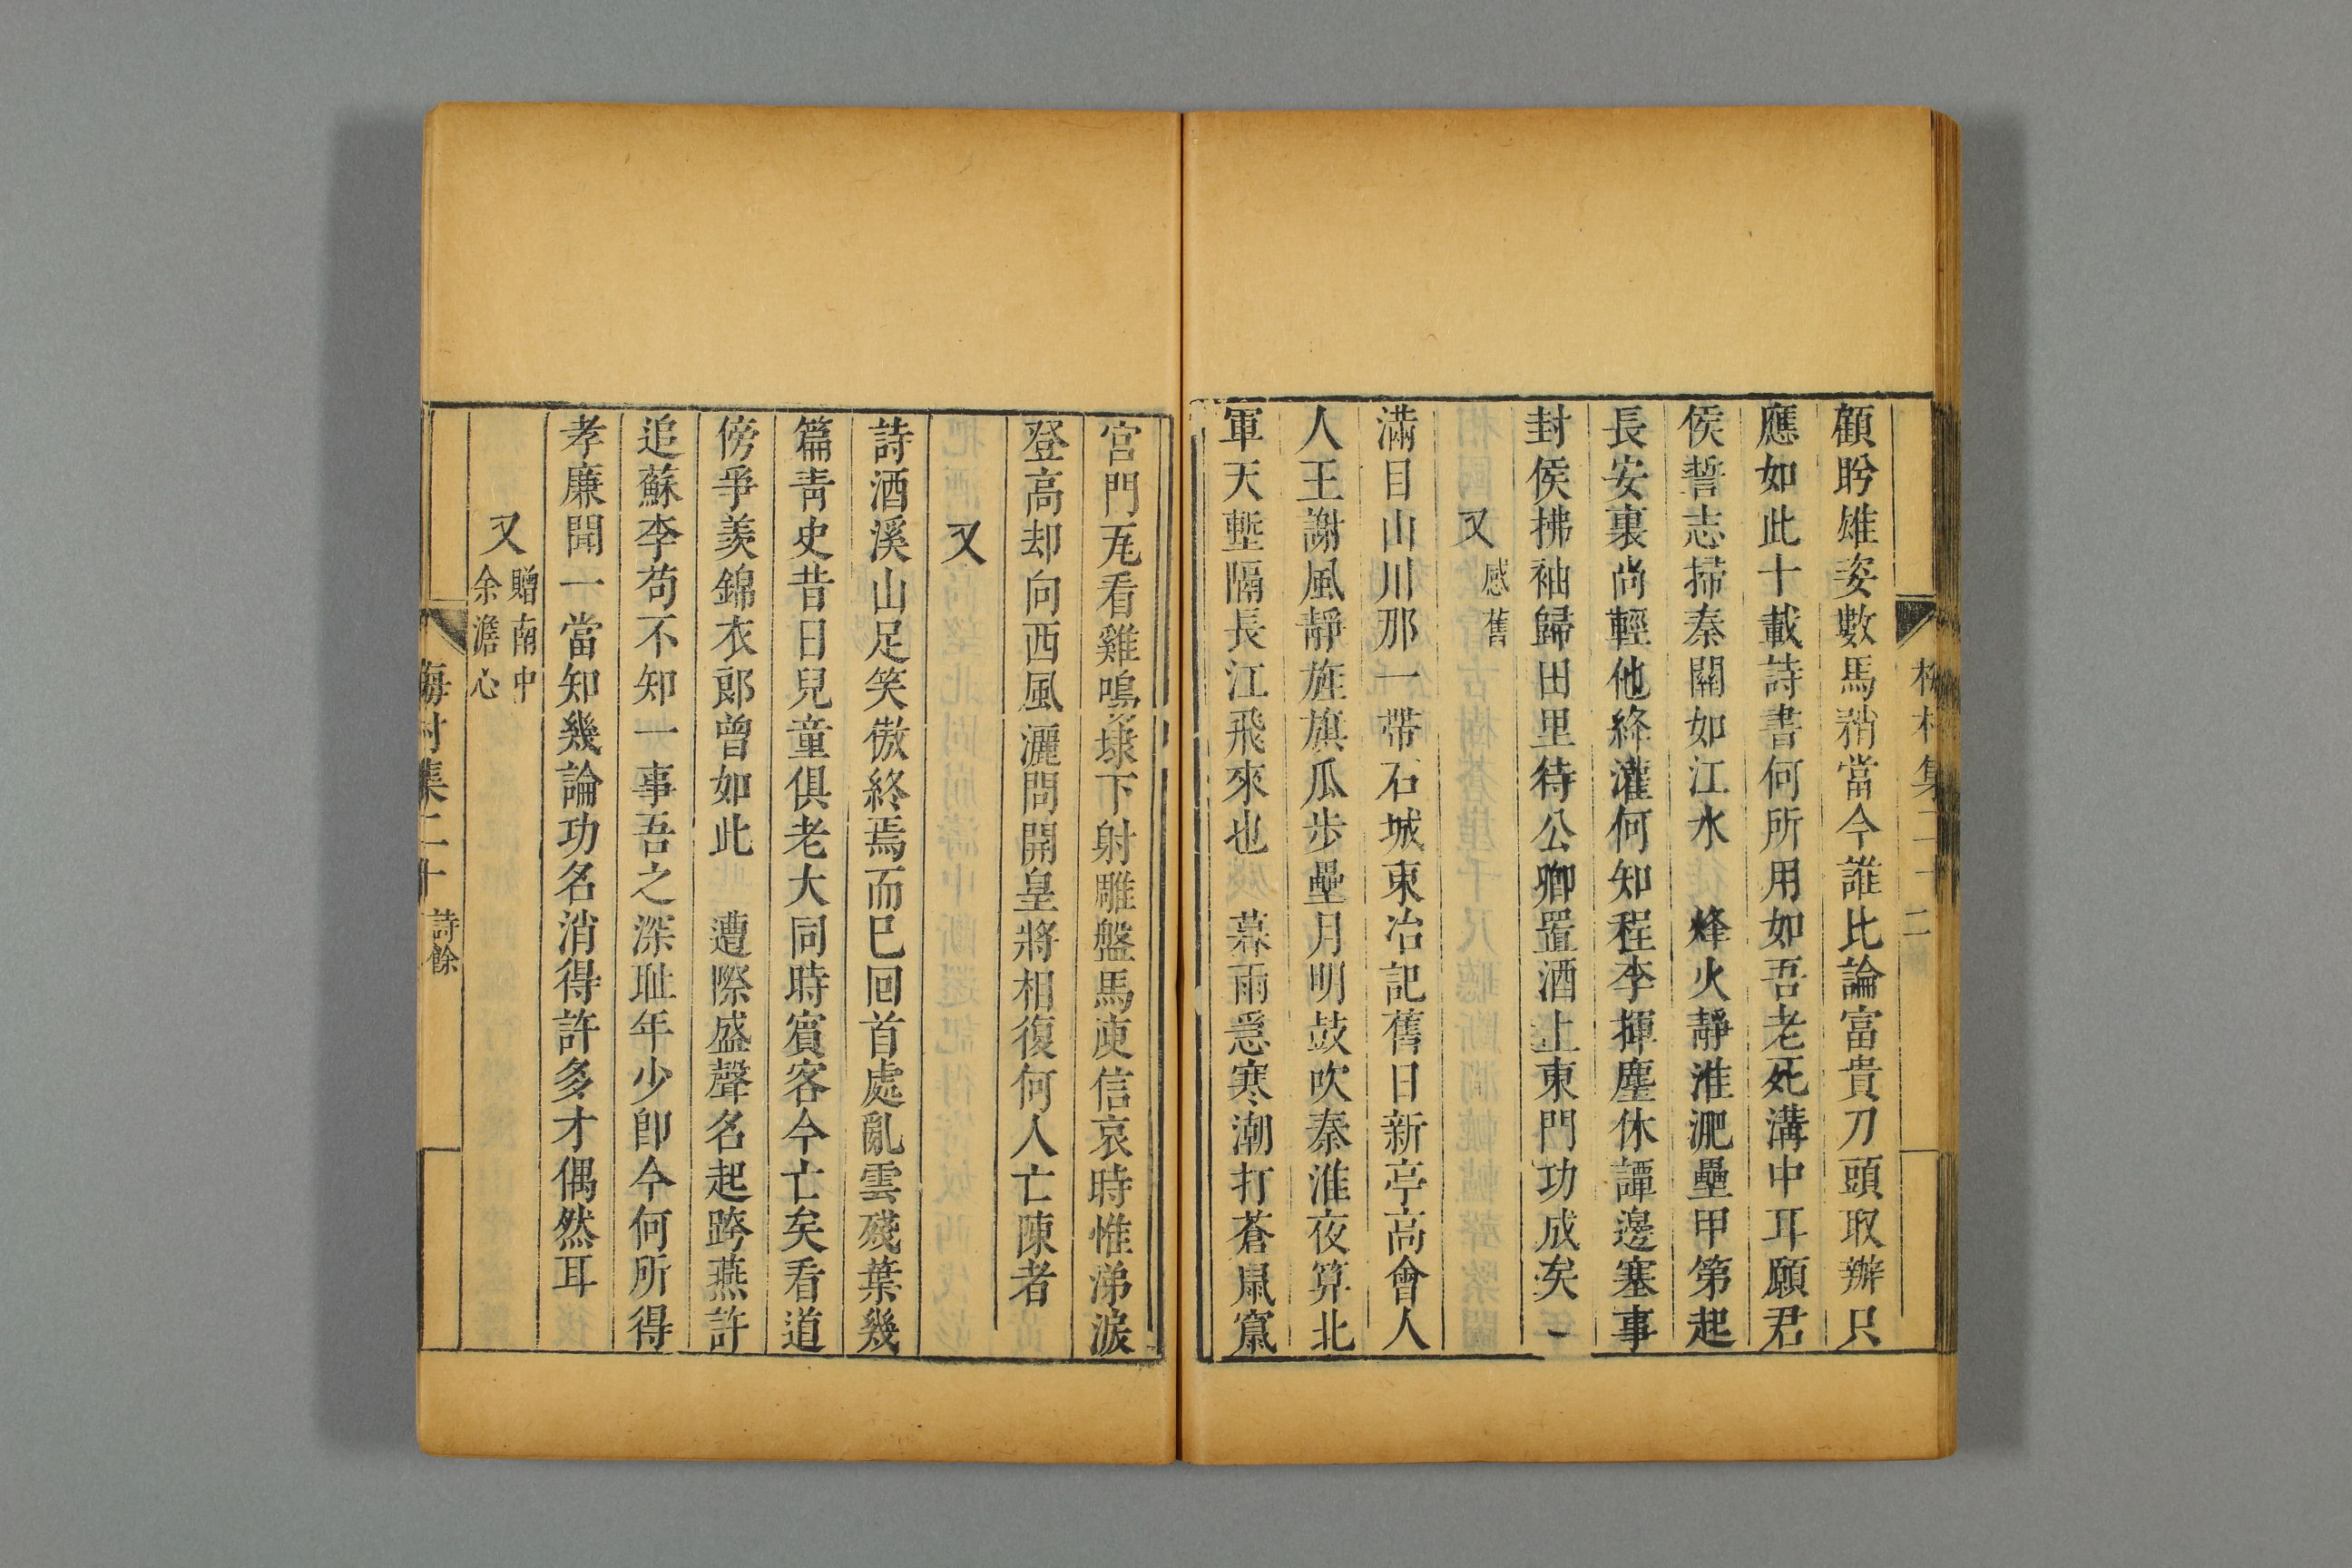 顧盼雄姿數馬矟當今誰比論富貴刀頭取辦只
應如此十載詩書何所用如吾老死溝中耳願君
侯誓志掃秦關如江水　烽火靜淮淝壘甲第起
長安裏尚輕他絳灌何知程李揮麈休譚邊塞事
封侯拂袖歸田里待公卿置酒上東門功成矣
又 感舊
滿目山川那一帶石城東冶記舊日新亭高會人
人王謝風靜旌旗瓜步壘月明鼓吹秦淮夜算北
軍天塹隔長江飛來也　暮雨急寒潮打蒼鼠竄
宮門瓦看雞鳴埭下射雕盤馬庾信哀時惟涕淚
登高却向西風灑問開皇將相復何人亡陳者
又
詩酒溪山足笑傲終焉而已回首處亂雲殘葉幾
篇靑史昔日兒童俱老大同時賓客今亡矣看道
傍爭羨錦衣郎曾如此　遭際盛聲名起跨燕許
追蘇李苟不知一事吾之深耻年少卽今何所得
孝廉聞一當知幾論功名消得許多才偶然耳
又 贈南中
余澹心
梅村集二十 詩餘